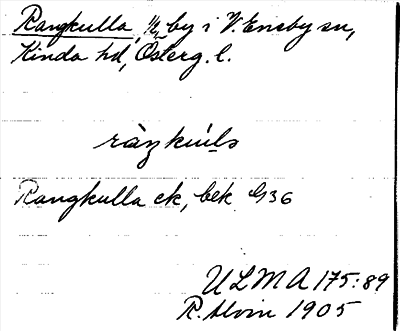 Rangkulla, by i V. Eneby sn,
Kinda hd, Österg. l.
Rangkulla ek, bek G36
ULMA 175:89
R. Alvin 1905